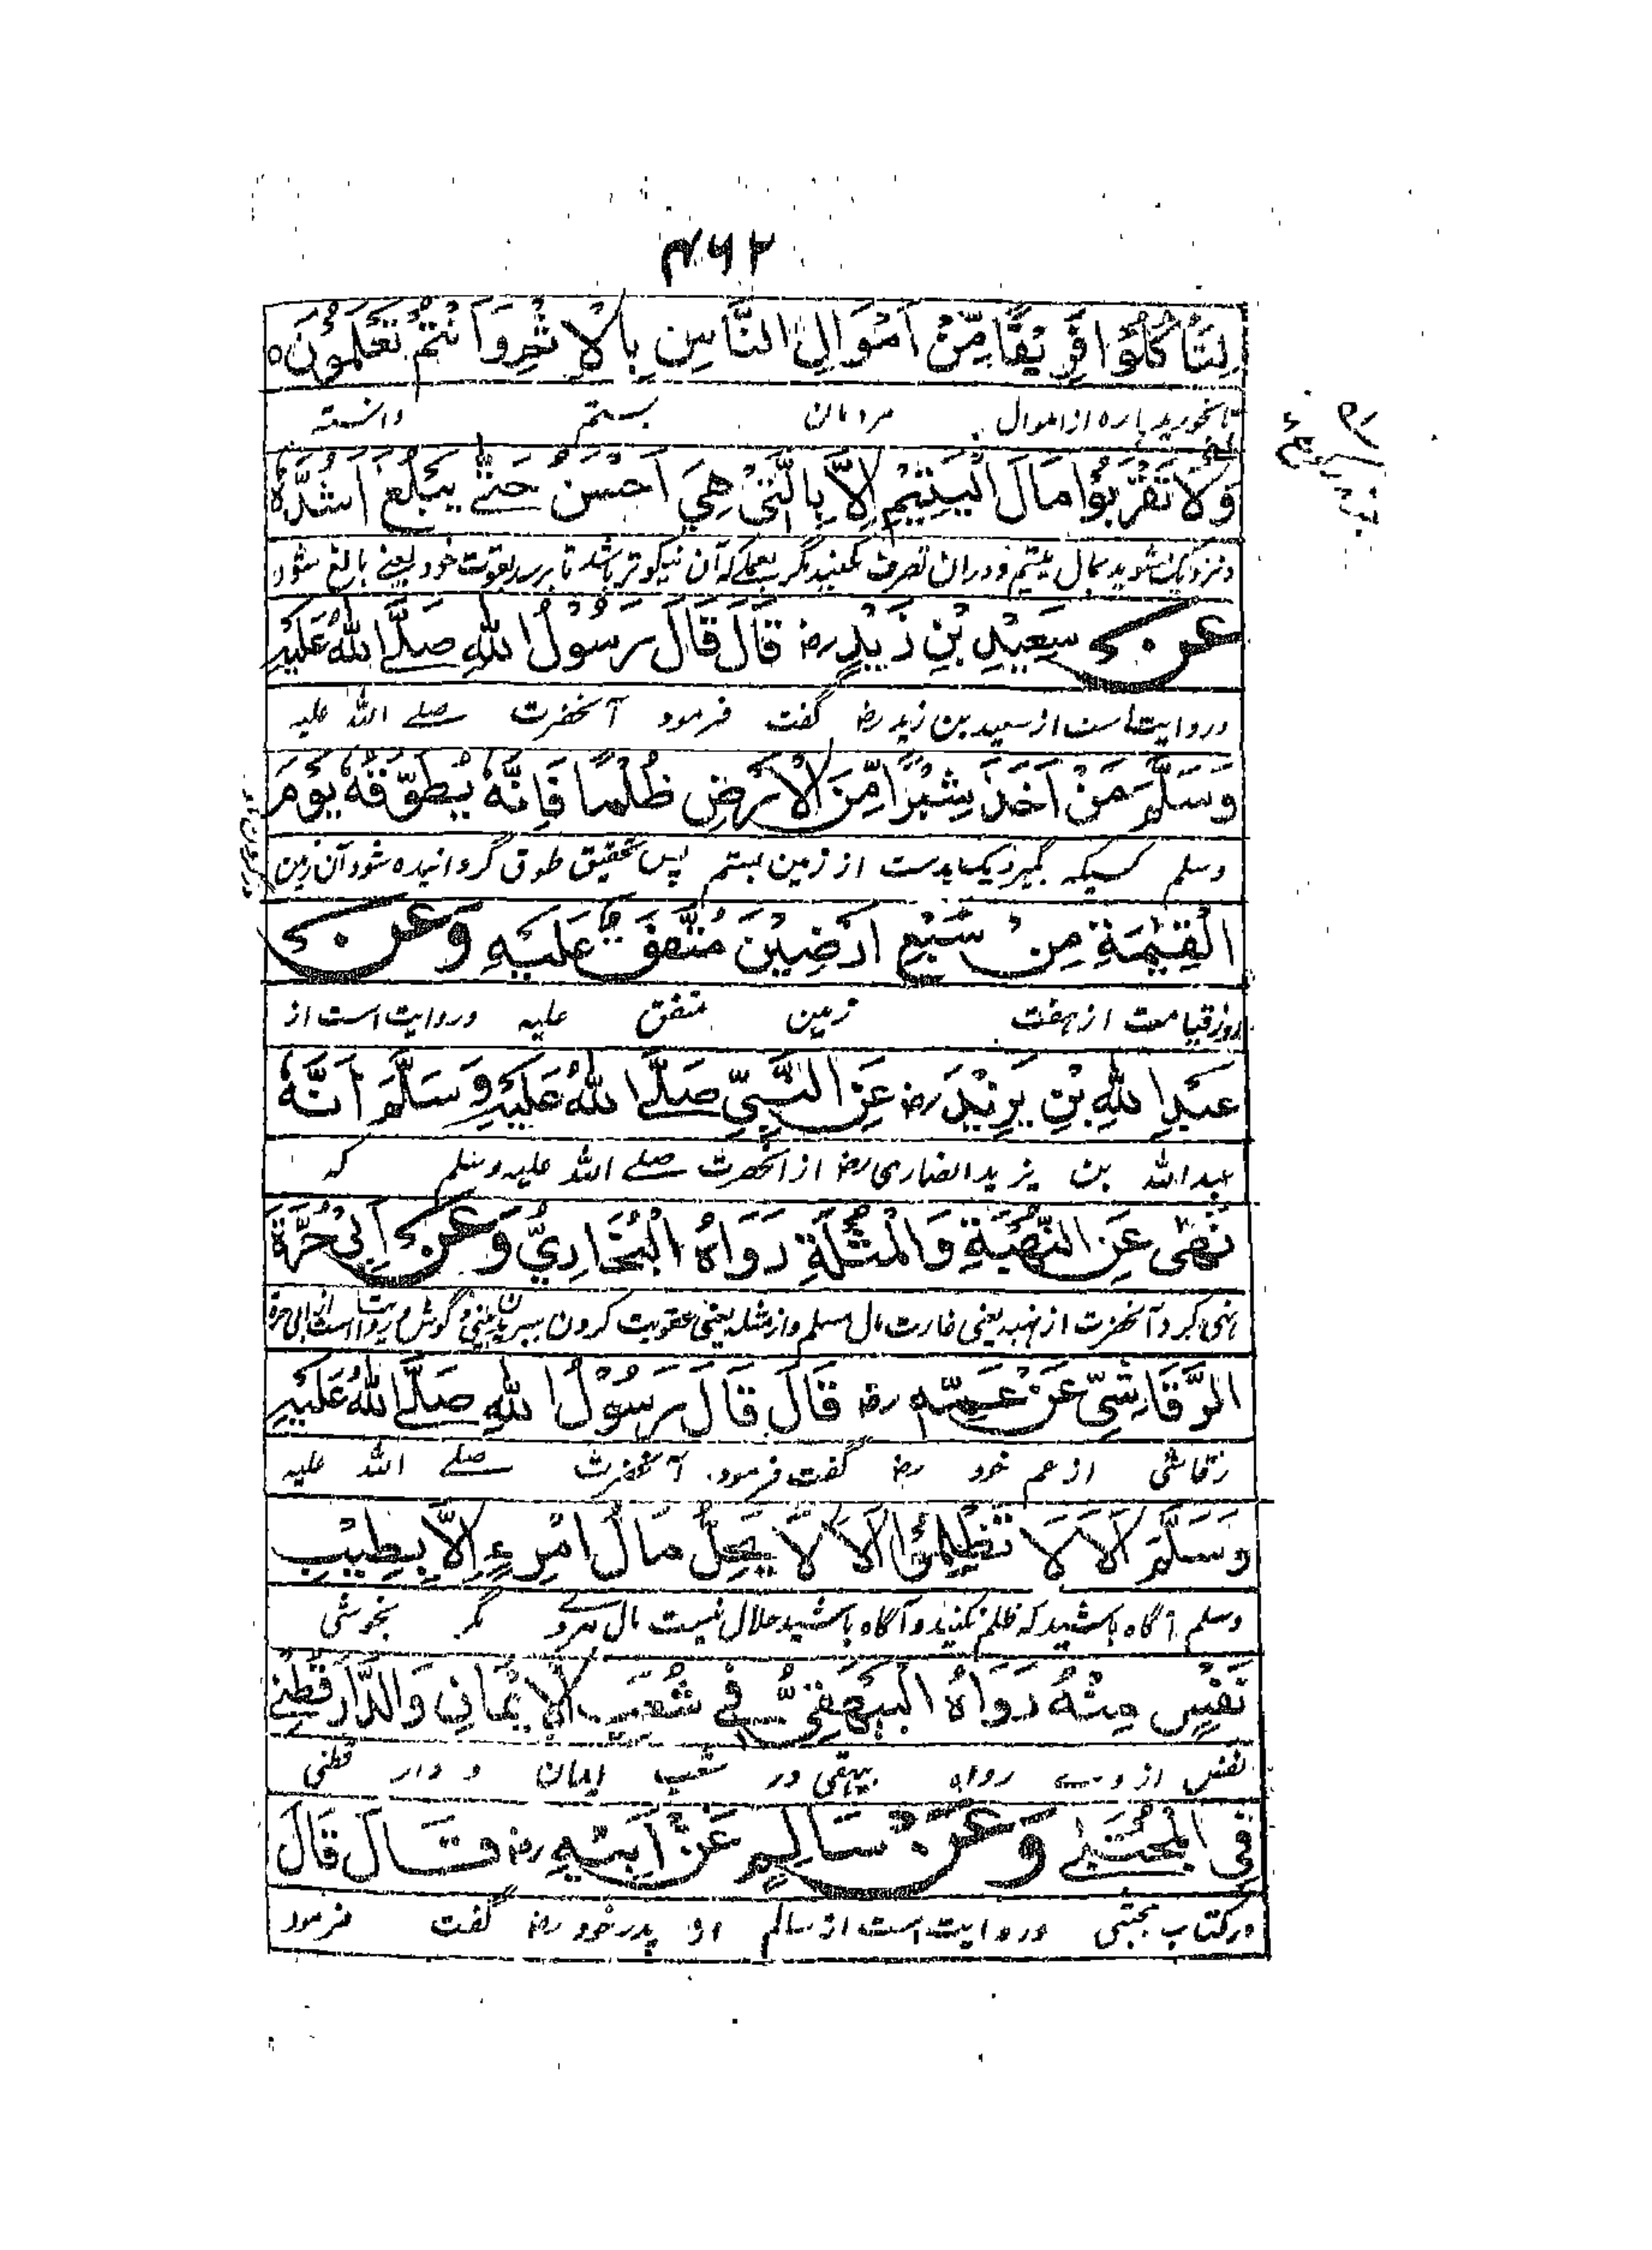 ۴۶۲
لِتَأْكُلُوْا فَرِيْقًا مِّنْ اَمْوَالِ النَّاسِ بِالْاِثْمِ وَاَنْتُمْ تَعْلَمُوْنَ ه
تا بخورید پاره از اموال مردمان بستم دانسته
وَلَا تَقْرَبُوْا مَالَ الْيَتِيْمِ اِلَّا بِالَّتِیْ هِيَ اَحْسَنُ حَتّٰی يَبْلُغَ اَشُدَّهٗ
ونزدیک نشوید بمال یتیم ودران تصرف نکنید مگر بعملے که آن نیکوتر باشد تا برسد بقوت خود یعنے بالغ شود
عَنْ سَعِيْدِ بْنِ زَيْدٍ رض قَالَ قَالَ رَسُوْلُ اللهِ صَلَّے اللهُ عَلَيْهِ
وروایت است از سعید بن زید رض گفت فرمود آنحضرت صلے الله علیه
وَسَلَّمَ مَنْ اَخَذَ شِبْرًا مِّنَ الْاَرْضِ ظُلْمًا فَاِنَّهٗ يُطَوَّقُهٗ يَوْمَ
وسلم کسیکه بگیرد یک بدست از زمین بستم پس تحقیق طوق گردانیده شود آن زمین
الْقِيٰمَةِ مِنْ سَبْعِ اَرَضِيْنَ مُتَّفَقٌ عَلَيْهِ وَعَنْ
روز قیامت از هفت زمین متفق علیه وروایت است از
عَبْدِ اللهِ بْنِ يَزِيْدَ رض عَنِ النَّبِيِّ صَلَّے اللهُ عَلَيْهِ وَسَلَّمَ اَنَّهٗ
عبدالله بن یزید انصاری رض از آنحضرت صلے الله علیه وسلم که
نَهٰی عَنِ النُّهْبَةِ وَالْمُثْلَةِ رَوَاهُ الْبُخَارِيُّ وَعَنْ اَبِیْ حُرَّةَ
نهی کرد آنحضرت از نهبه یعنی غارت مال مسلم واز مثله یعنی عقوبت کردن ببریدن بینی و گوش وروایت است از ابی حره
الرَّقَاشِیِّ عَنْ عَمِّهٖ رض قَالَ قَالَ رَسُوْلُ اللهِ صَلَّے اللهُ عَلَيْهِ
رقاشی از عم خود رض گفت فرمود آنحضرت صلے الله علیه
وَسَلَّمَ اَلَا لَا تَظْلِمُوْا اَلَا لَا يَحِلُّ مَالُ امْرِءٍ اِلَّا بِطِيْبِ
وسلم آگاه باشید که ظلم نکنید وآگاه باشید حلال نیست مال مردے مگر بخوشی
نَفْسٍ مِنْهُ رَوَاهُ الْبَيْهَقِيُّ فِیْ شُعَبِ الْاِيْمَانِ وَالدَّارَ قُطْنِے
نفس از وے رواه بیهقی در شعب ایمان و دار قطنی
فِی الْمُجْتَبٰے وَعَنْ سَالِمٍ عَنْ اَبِيْهِ رض قَالَ قَالَ
در کتاب مجتبی وروایت است از سالم از پدر خود رض گفت فرمود